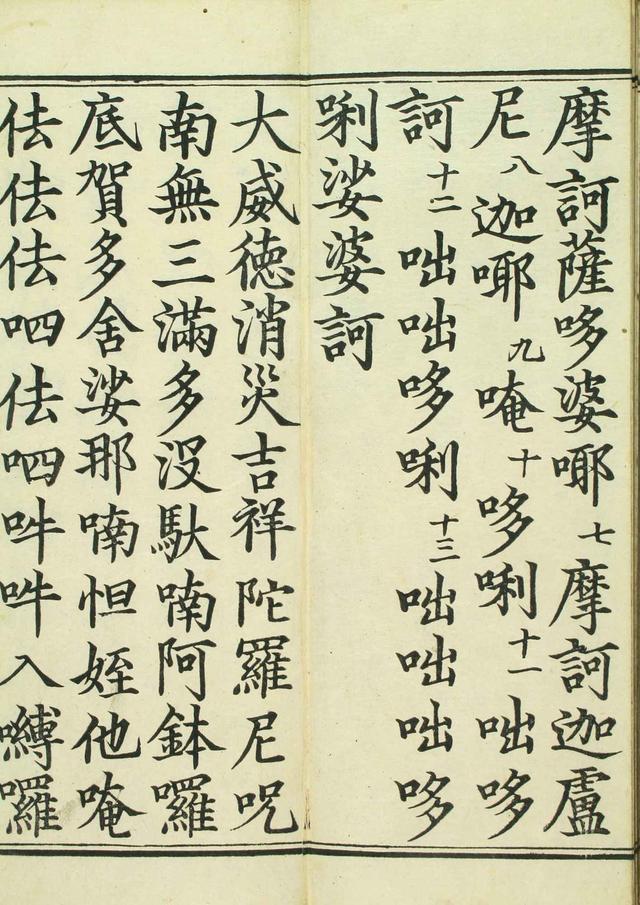 摩訶薩哆婆耶七摩訶迦盧
尼八迦耶九唵十哆唎十一咄哆
訶十二咄咄哆唎十三咄咄咄哆
唎娑婆訶
大威德消災吉祥陀羅尼呪
南無三滿多没馱喃阿鉢囉
底賀多舍娑那喃怛姪他唵
佉佉佉呬佉呬吽吽入嚩囉